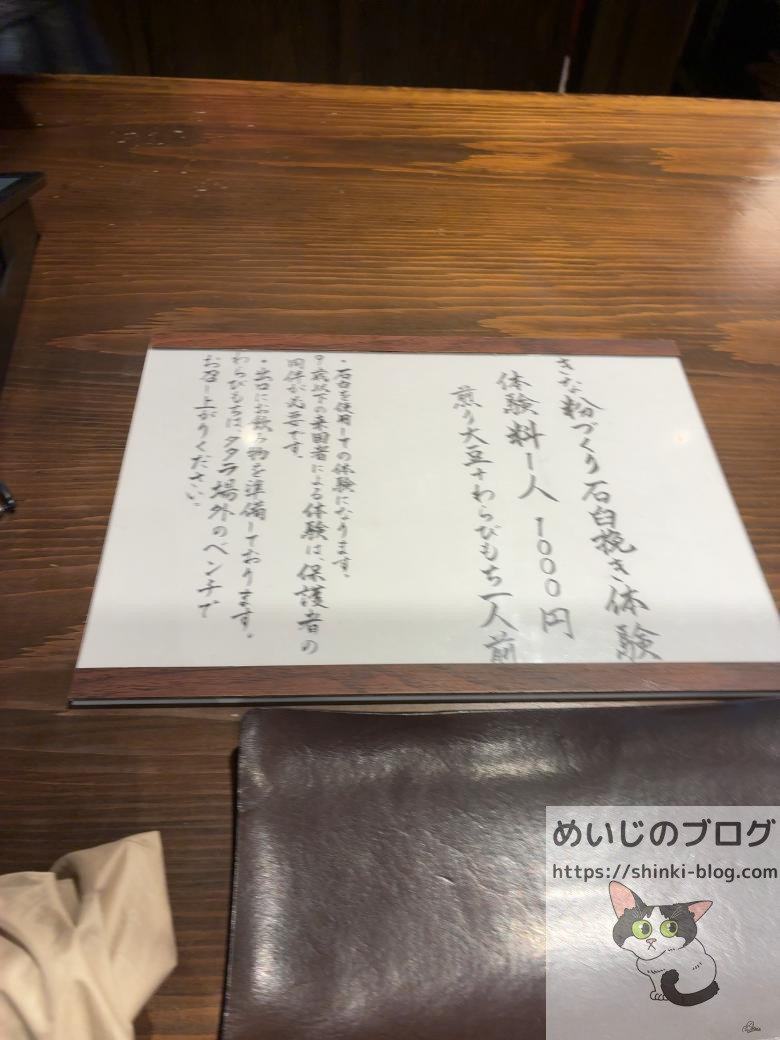 きな粉づくり石臼挽き体験
体験料一人 1000円
煎り大豆+わらびもち一人前
・石臼を使用しての体験になります。
9歳以下の来園者による体験は、保護者の
同伴が必要です。
・出口にお飲み物を準備しております。
わらびもちは、タタラ場外のベンチで
お召し上がりください。
めいじのブログ
https://shinki-blog.com